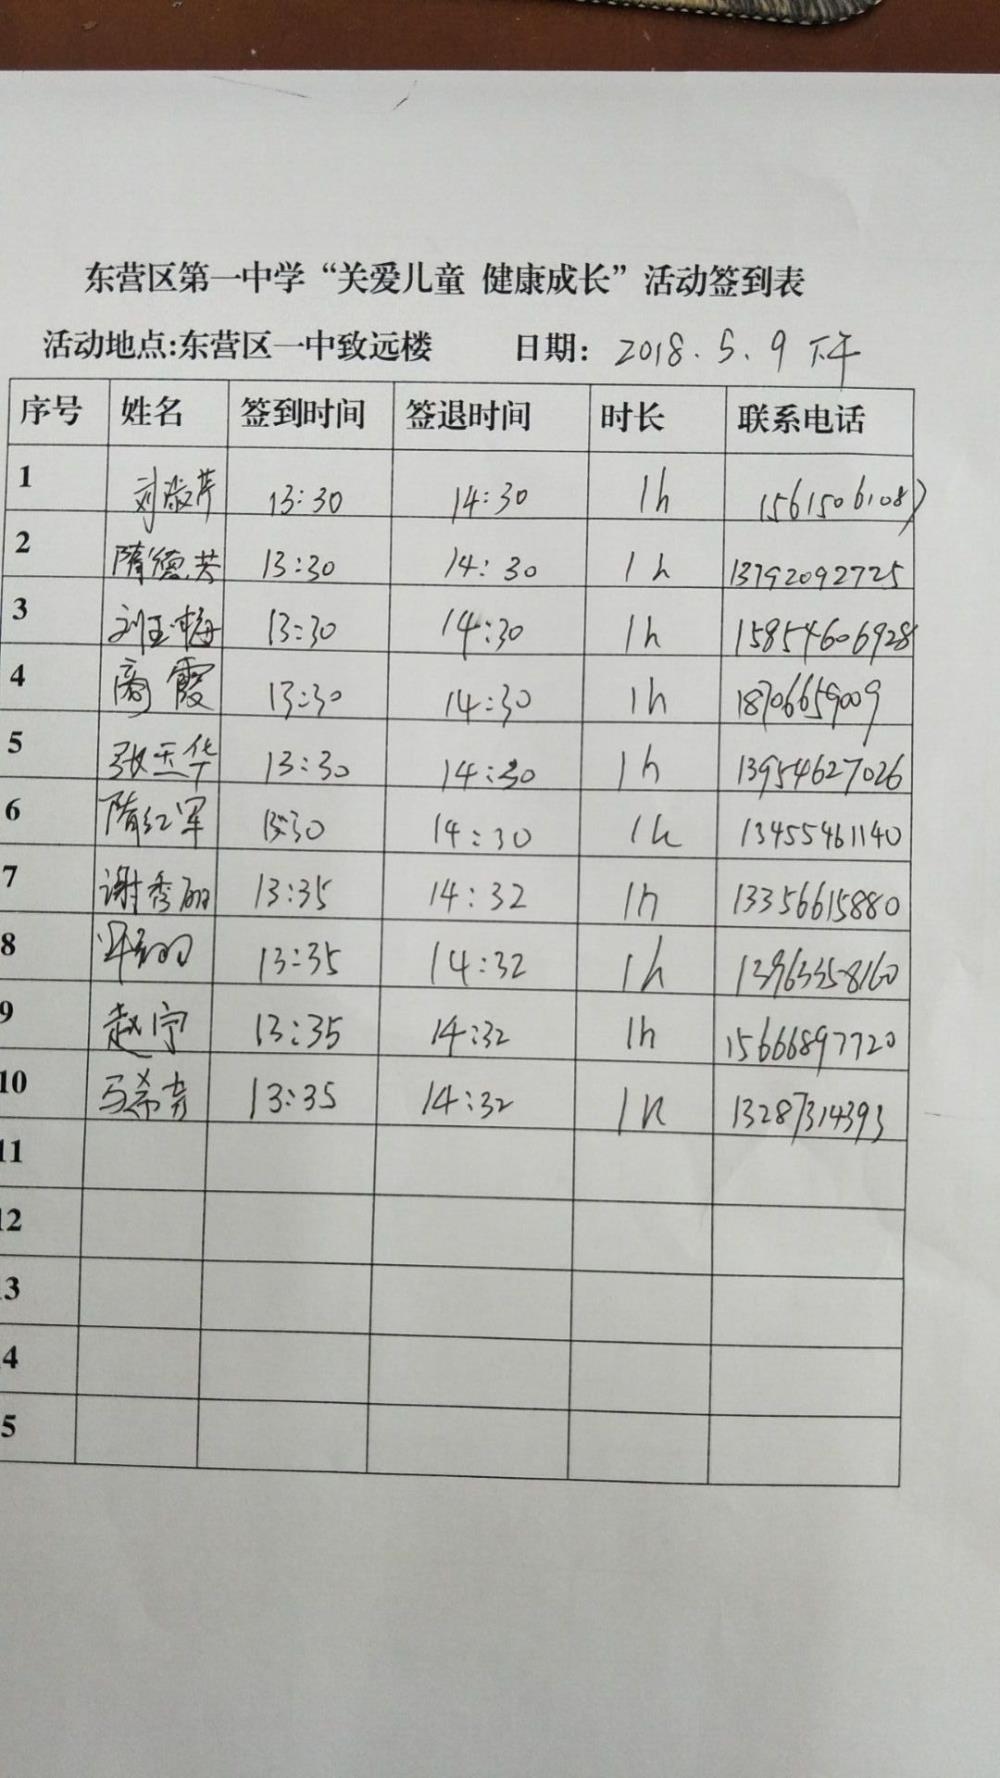 东营区第一中学“关爱儿童 健康成长”活动签到表
活动地点:东营区一中致远楼 日期: 2018.5.9 下午
序号 姓名 签到时间 签退时间 时长 联系电话
1 刘敬芹 13:30 14:30 1h
2 隋德芳 13:30 14:30 1h 13792092725
3 刘玉梅 13:30 14:30 1h 15854606928
4 商霞 13:30 14:30 1h 18706659009
5 张玉华 13:30 14:30 1h 13954627026
6 隋红军 13:30 14:30 1h 13455461140
7 谢秀丽 13:35 14:32 1h 13356615880
8 13:35 14:32 1h 13963358160
9 赵宁 13:35 14:32 1h 15666897720
10 马希芳 13:35 14:32 1h 13287314393
11
12
13
14
15